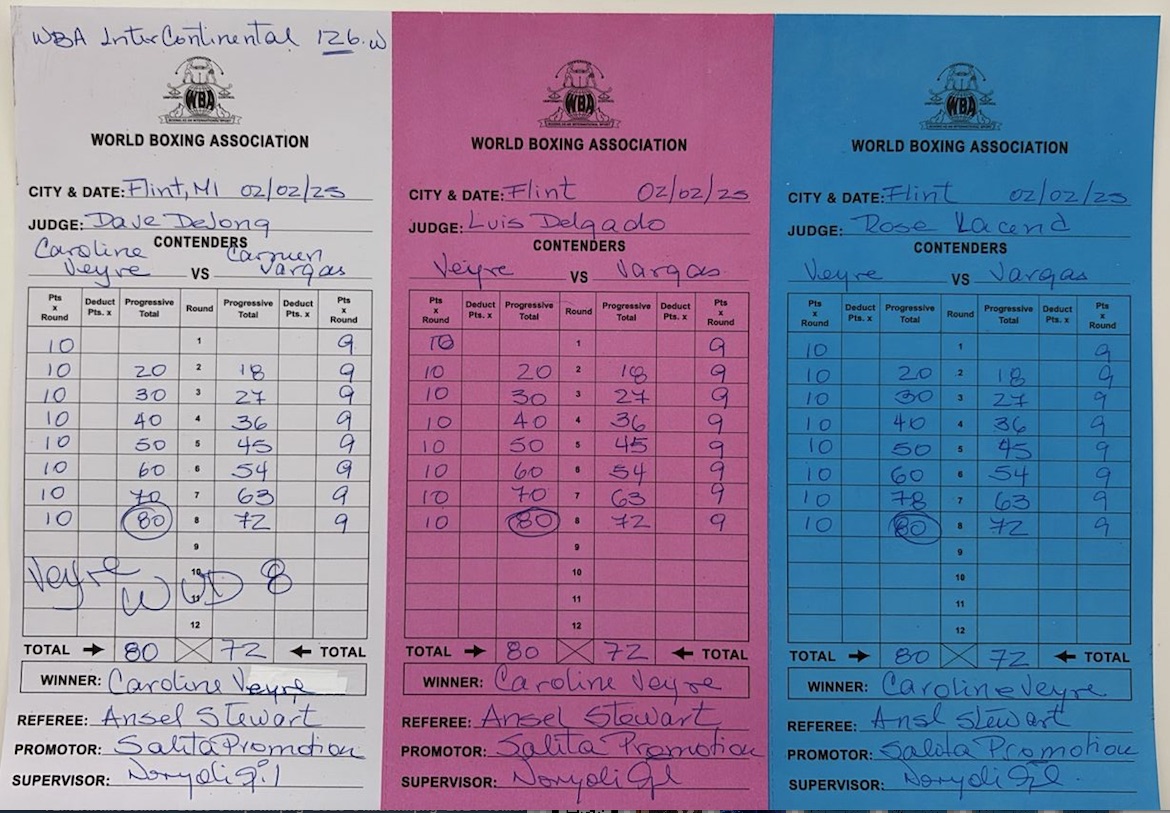 WBA InterContinental 126.w
WBA
WORLD BOXING ASSOCIATION
CITY & DATE: Flint, MI 02/02/25
JUDGE: Dave DeJong
CONTENDERS
Caroline Carmen
Veyre VS Vargas
Pts x Round Deduct Pts. x Progressive Total Round Progressive Total Deduct Pts. x Pts x Round
10 1 9
10 20 2 18 9
10 30 3 27 9
10 40 4 36 9
10 50 5 45 9
10 60 6 54 9
10 70 7 63 9
10 80 8 72 9
9
Veyre 10 8
W UD 11
12
TOTAL 80 72 TOTAL
WINNER: Caroline Veyre
REFEREE: Ansel Stewart
PROMOTOR: Salita Promotion
SUPERVISOR:
WBA
WORLD BOXING ASSOCIATION
CITY & DATE: Flint 02/02/25
JUDGE: Luis Delgado
CONTENDERS
Veyre VS Vargas
Pts x Round Deduct Pts. x Progressive Total Round Progressive Total Deduct Pts. x Pts x Round
10 1 9
10 20 2 18 9
10 30 3 27 9
10 40 4 36 9
10 50 5 45 9
10 60 6 54 9
10 70 7 63 9
10 80 8 72 9
9
10
11
12
TOTAL 80 72 TOTAL
WINNER: Caroline Veyre
REFEREE: Ansel Stewart
PROMOTOR: Salita Promotion
SUPERVISOR:
WBA
WORLD BOXING ASSOCIATION
CITY & DATE: Flint 02/02/25
JUDGE: Rose Lacend
CONTENDERS
Veyre VS Vargas
Pts x Round Deduct Pts. x Progressive Total Round Progressive Total Deduct Pts. x Pts x Round
10 1 9
10 20 2 18 9
10 30 3 27 9
10 40 4 36 9
10 50 5 45 9
10 60 6 54 9
10 78 7 63 9
10 80 8 72 9
9
10
11
12
TOTAL 80 72 TOTAL
WINNER: Caroline Veyre
REFEREE: Ansl Stewart
PROMOTOR: Salita Promotion
SUPERVISOR: